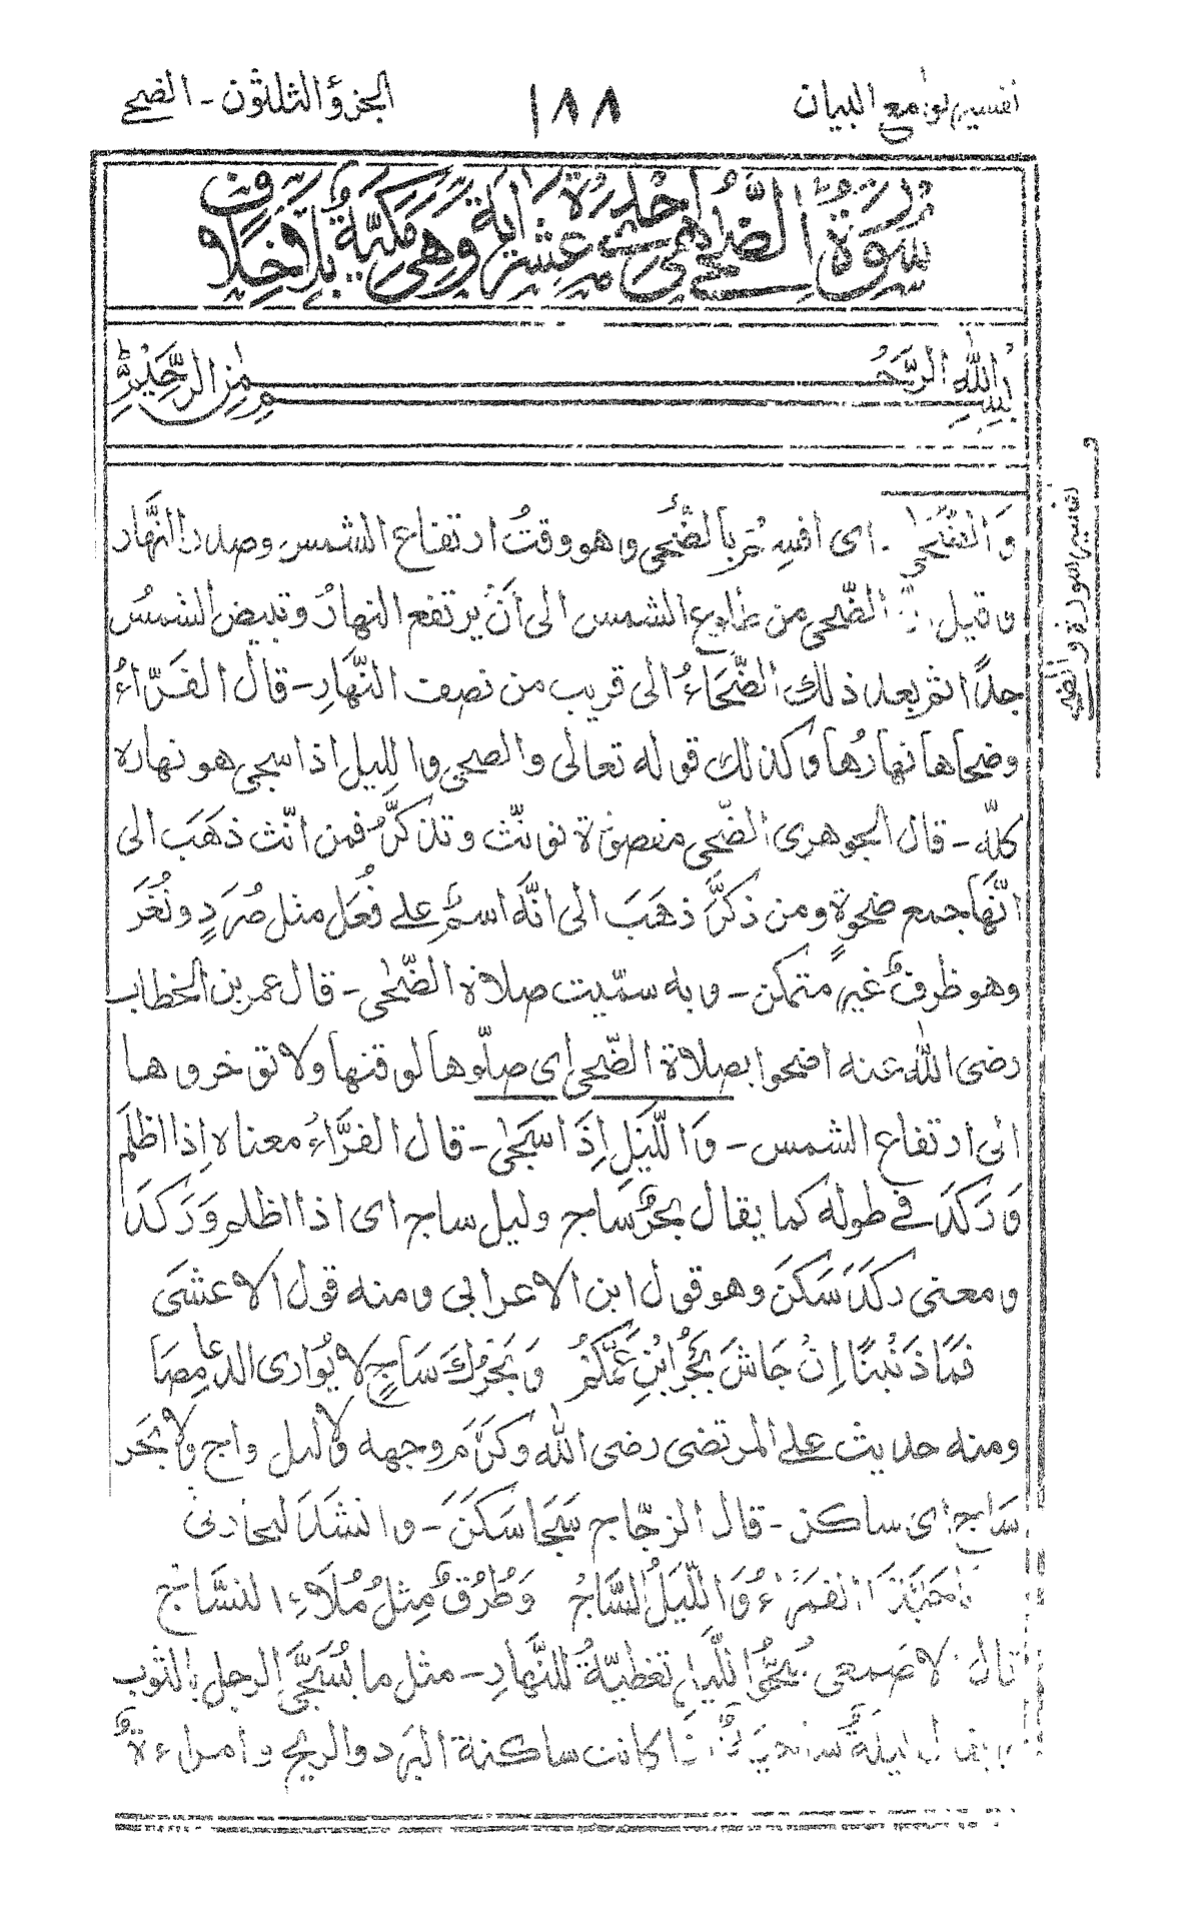 تفسير لوامع البيان ١٨٨ الجزؤ الثلثون - الضحى
سورةُ الضُّحى هى احدى عشرة اٰية وهى مكيّةٌ بلا خلاف
بسم الله الرحمٰن الرحيم
تفسير سورة والضحى
وَالضُّحٰى - اى اقسِمُ بالضُّحى وهو وقتُ ارتفاع الشمس وصدر النَّهار
وقيل الضّحى من طلوع الشمس الى أنْ يرتفع النهارُ وتبيض الشمسُ
جدًا ثم بعد ذلك الضَّحَاءُ الى قريب من نصف النَّهَارِ - قال الفَرَّاءُ
وضحاها نهارُها وكذلك قوله تعالى والضحى والليل اذا سجى هو نهاره
كلّه - قال الجوهرى الضّحى مقصورة تونّث وتذكَّرُ فمن انّث ذهَب الى
انّهَا جمع ضحوة ومن ذكَّرَ ذهَبَ الى انّهُ اسمٌ على فُعَل مثل صُرَدٍ ونُغَرَ
وهو ظرفٌ غير متمكن - وبه سمّيت صلاة الضُّحٰى - قال عمر بن الخطاب
رضى الله عنه اضحوا بصلاة الضُّحى اى صلّوها لوقتها ولا تؤخروها
الى ارتفاع الشمس - وَالَّيْلِ إِذَا سَجٰى - قال الفَرَّاءُ معناه اِذا اظلَمَ
وَرَكَدَ فى طوله كما يقال بحرٌ ساجٍ وليل ساج اى اذا اظلم وَرَكَدَ
ومعنى ركَدَ سَكَنَ وهو قول ابن الاعرابى ومنه قول الاعشَى
فَمَا ذَنْبُنَا إِنْ جَاشَ بَحْرُ ابْنِ عَمِّكُمْ وَبَحْرُكَ سَاجٍ لا يُوَارى الدعامصَا
ومنه حديث على المرتضى رضى الله وكرّم وجهه ولا ليل داج ولا بَحَر
سَاجٍ اى ساكن - قال الزجّاج سَجَا سَكَنَ - وانشَدَ للحارثى
يَا حَبَّذَا القَمَرَاءُ وَالَّليْلُ السَّاجُ وَطُرُقٌ مِثلُ مُلَاءِ النسَّاج
قال الاصمعى سُجُوُّ اللّيل تغطيّةٌ للنَّهارِ - مثل ما يُسَجَّى الرجل بالثوب
ويقال ليلةٌ كانت ساكنة البرد والريح وامراءةٌ